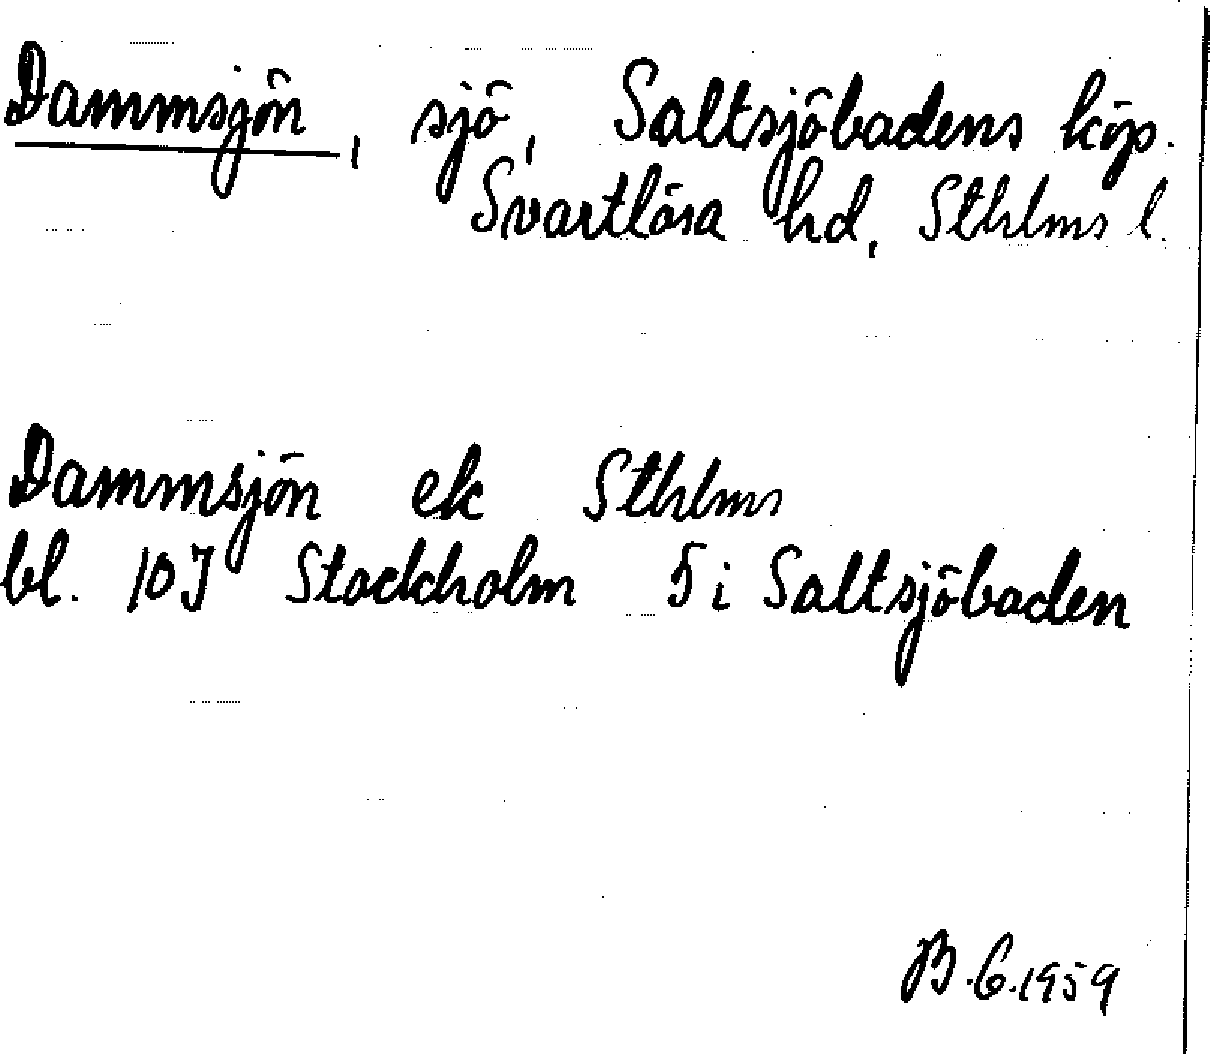 Dammsjön, sjö, Saltsjöbadens köp.
Svartlösa hd, Sthlms l.
Dammsjön ek Sthlms
bl. 10J Stockholm 5 i Saltsjöbaden
B.G.1959